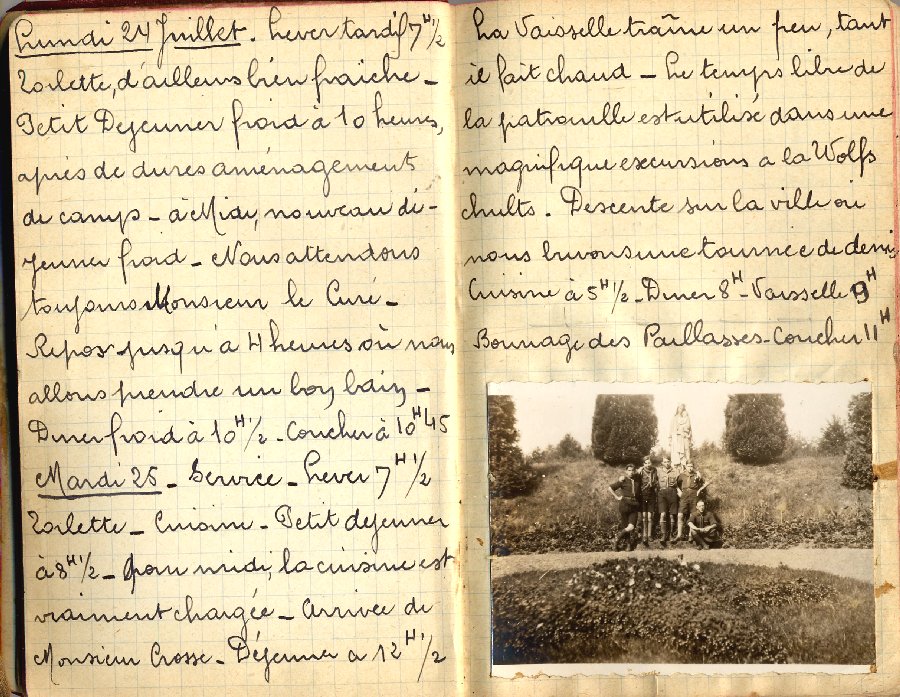 Lundi 24 Juillet. Lever tardif 7H1/2
Toilette, d'ailleurs bien fraîche –
Petit Dejeuner froid à 10 heures,
aprés de dures aménagement
de camp – à Midi, nouveau dé-
jeuner froid – Nous attendons
toujours Monsieur le Curé –
Repos jusqu'à 4 heures où nous
allons prendre un bon bain –
Diner froid à 10H1/2 – Coucher à 10H45
Mardi 25 – Service – Lever 7H1/2
Toilette – Cuisine – Petit dejeuner
à 8H1/2 – pour midi, la cuisine est
vraiment chargée – Arrivée de
Monsieur Crosse – Déjeuner a 12H1/2
La Vaisselle traîne un peu, tant
il fait chaud – Le temps libre de
la patrouille est utilisé dans une
magnifique excursions a la Wolfs
chults. Descente sur la ville où
nous buvons une tournée de demi
Cuisine à 5H1/2 – Diner 8H – Vaisselle 9H
Bourrage des Paillasses – Coucher 11H